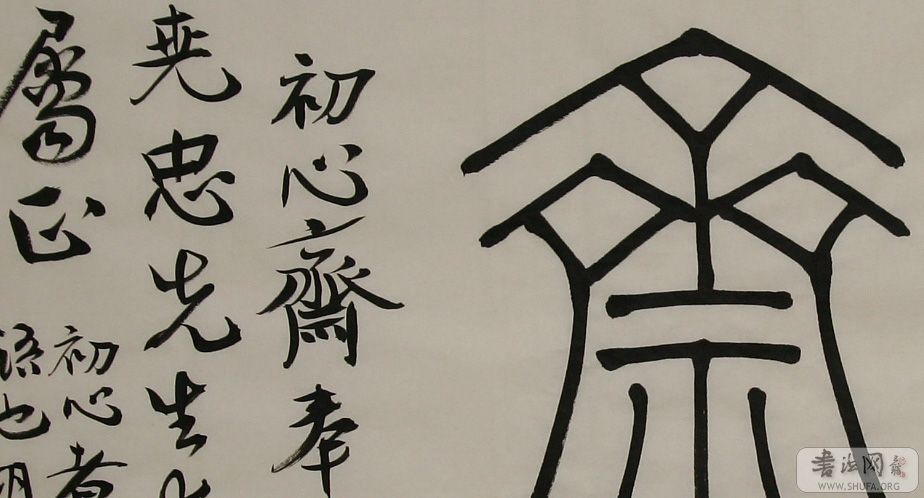 齋
初心齋奉
尧忠先生
屬正
初心者
語也
书法网
WWW.SHUFA.ORG